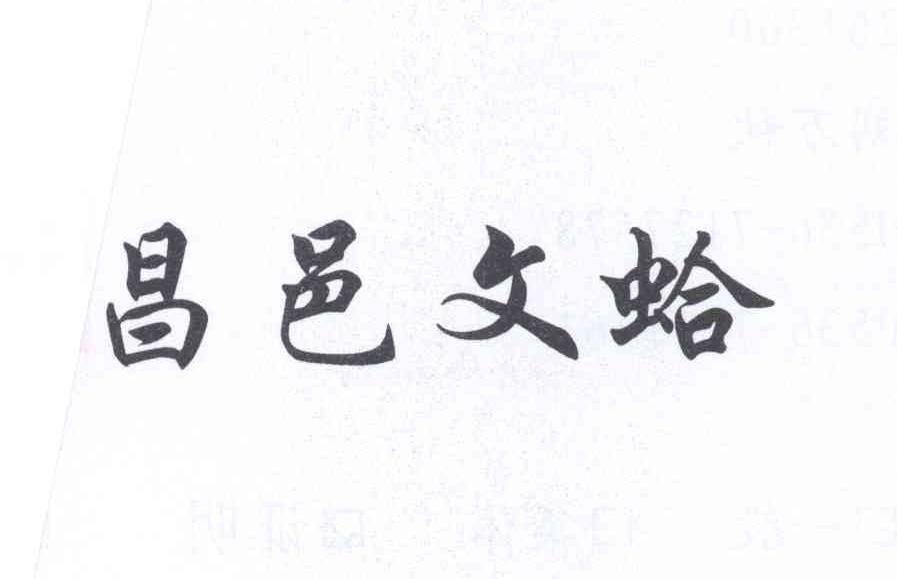 昌邑文蛤